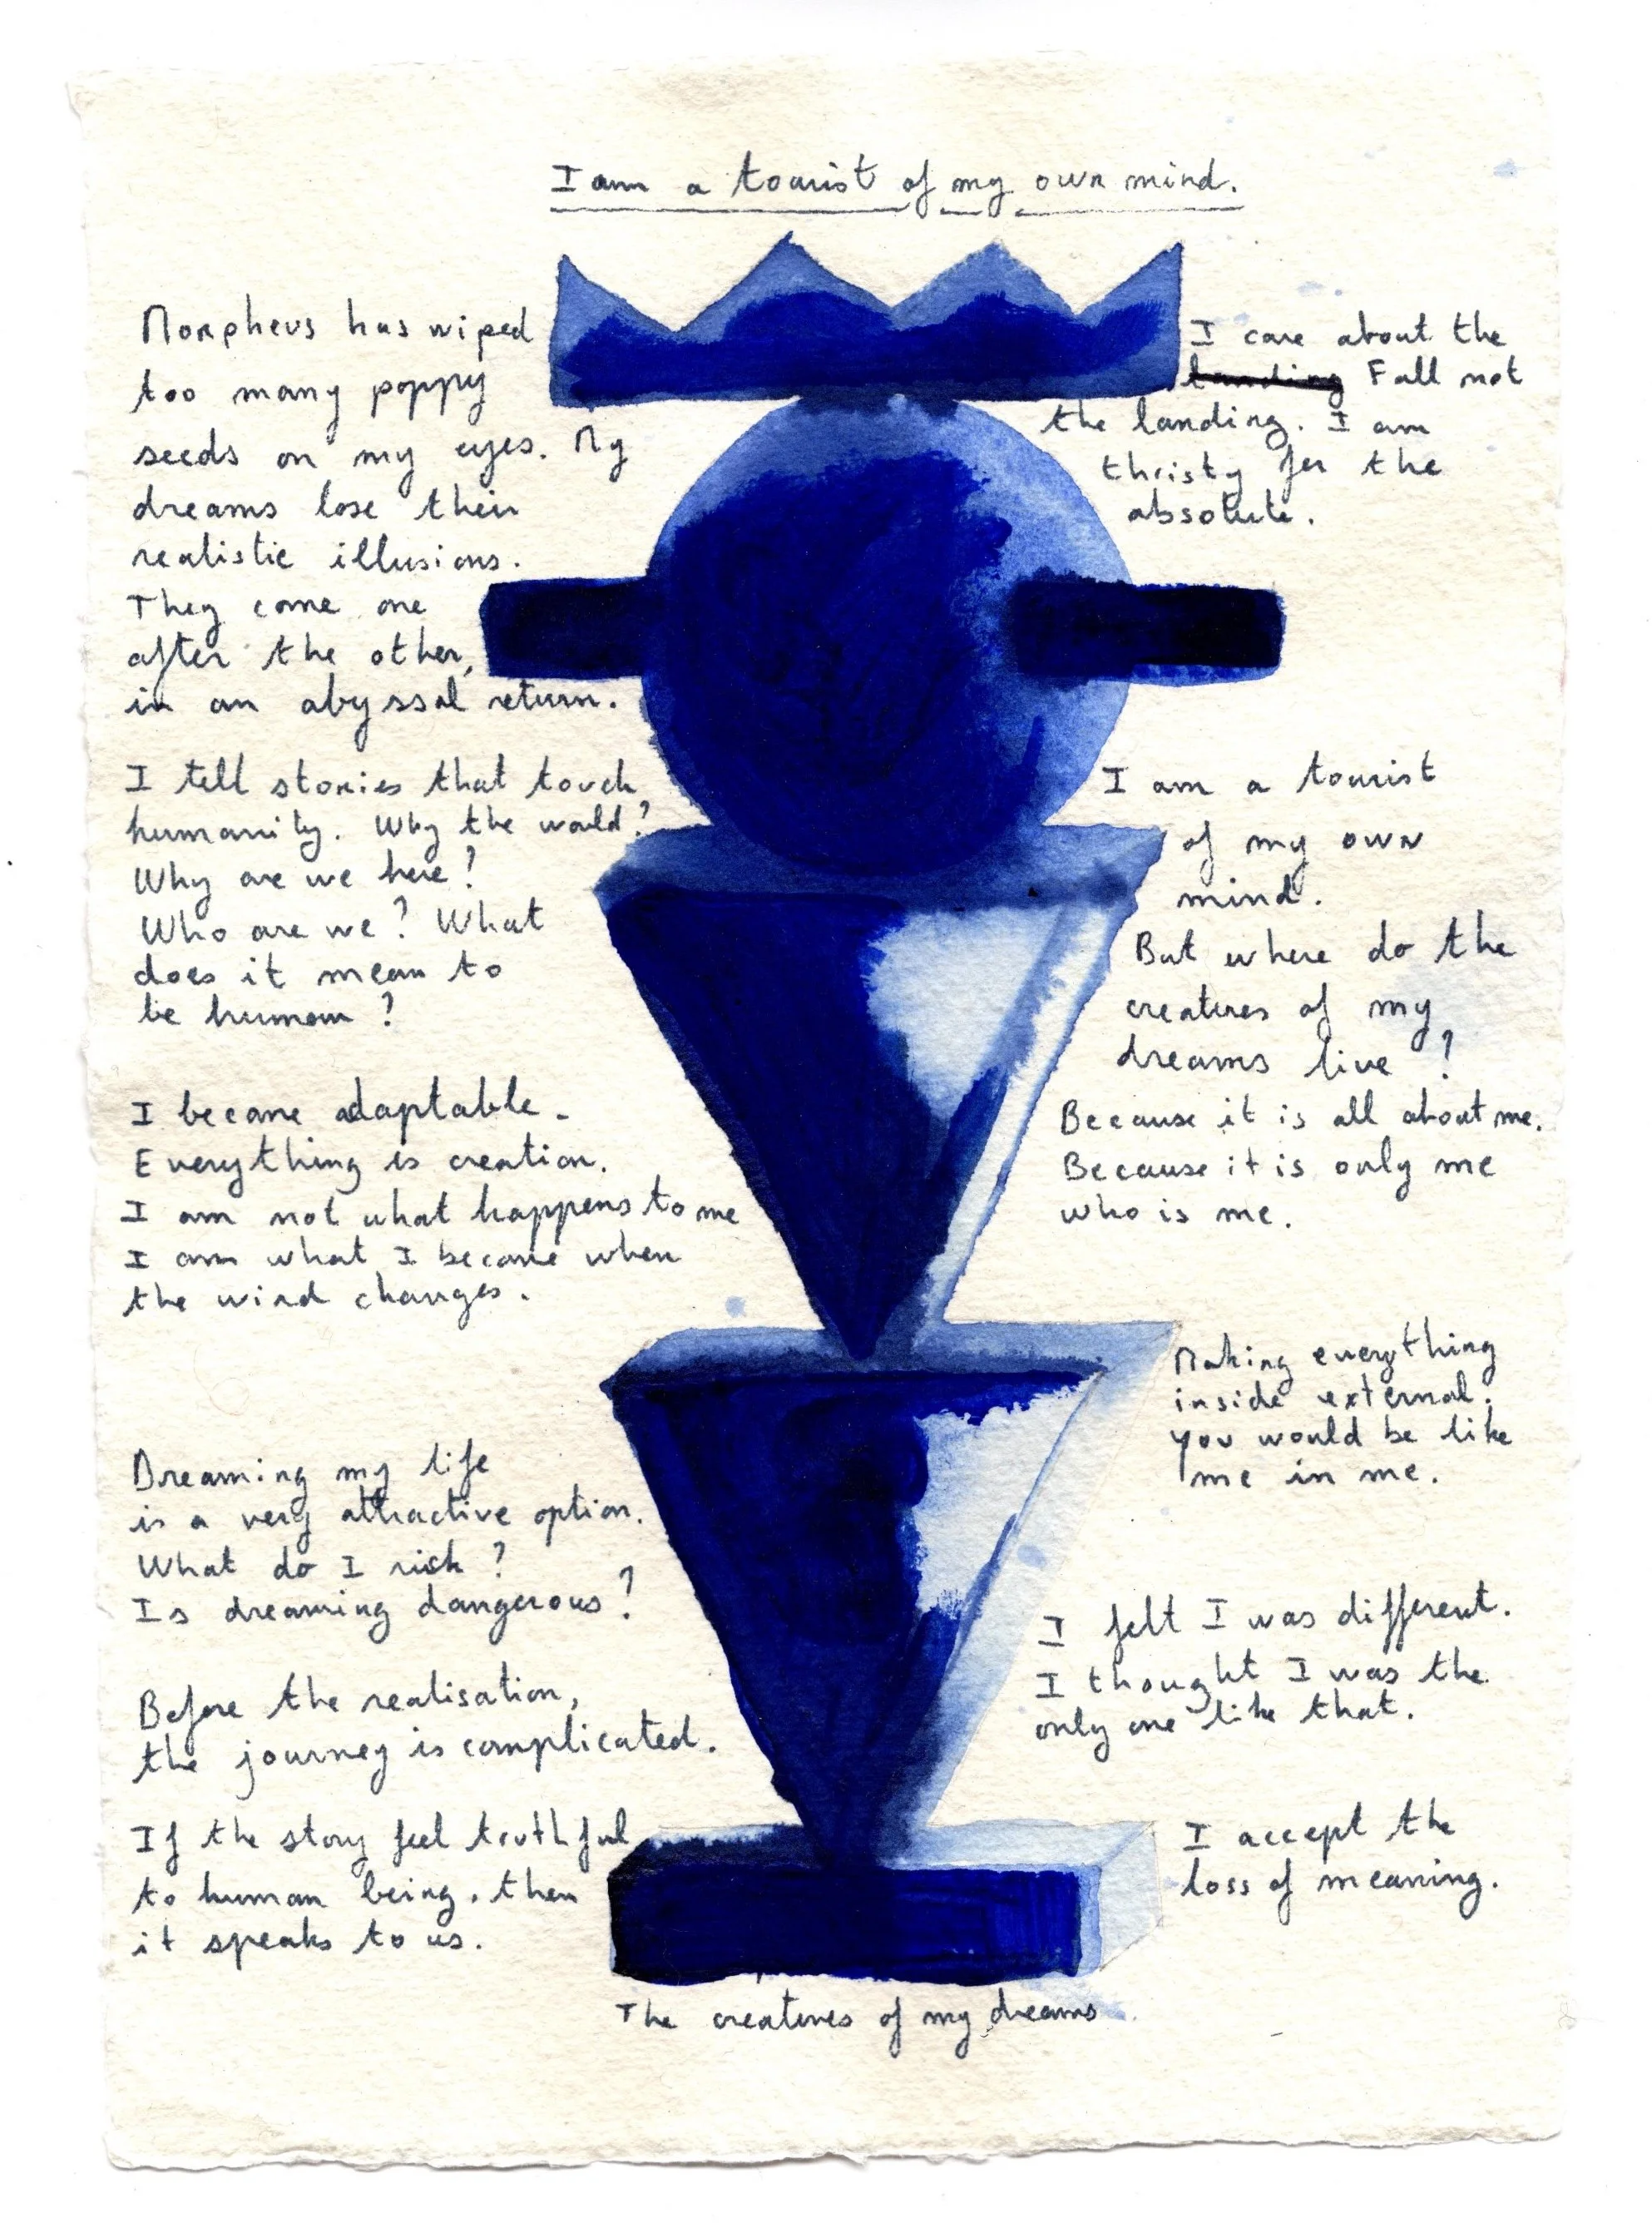 I am a tourist of my own mind.
Morpheus has wiped
too many poppy
seeds on my eyes. My
dreams lose their
realistic illusions.
They come one
after the other,
in an abyssal return.
I tell stories that touch
humanity. Why the would?
Why are we here?
Who are we? What
does it mean to
be human?
I become adaptable.
Everything is creation.
I am not what happens to me
I am what I become when
the wind changes.
Dreaming my life
is a very attractive option.
What do I risk?
Is dreaming dangerous?
Before the realisation,
the journey is complicated.
If the story feel truthful
to human being, then
it speaks to us.
I care about the
landing Fall not
the landing. I am
thristy for the
absolute.
I am a tourist
of my own
mind.
But where do the
creatures of my
dreams live?
Because it is all about me.
Because it is only me
who is me.
Making everything
inside external.
you would be like
me in me.
I felt I was different.
I thought I was the
only one like that.
I accept the
loss of meaning.
The creatures of my dreams